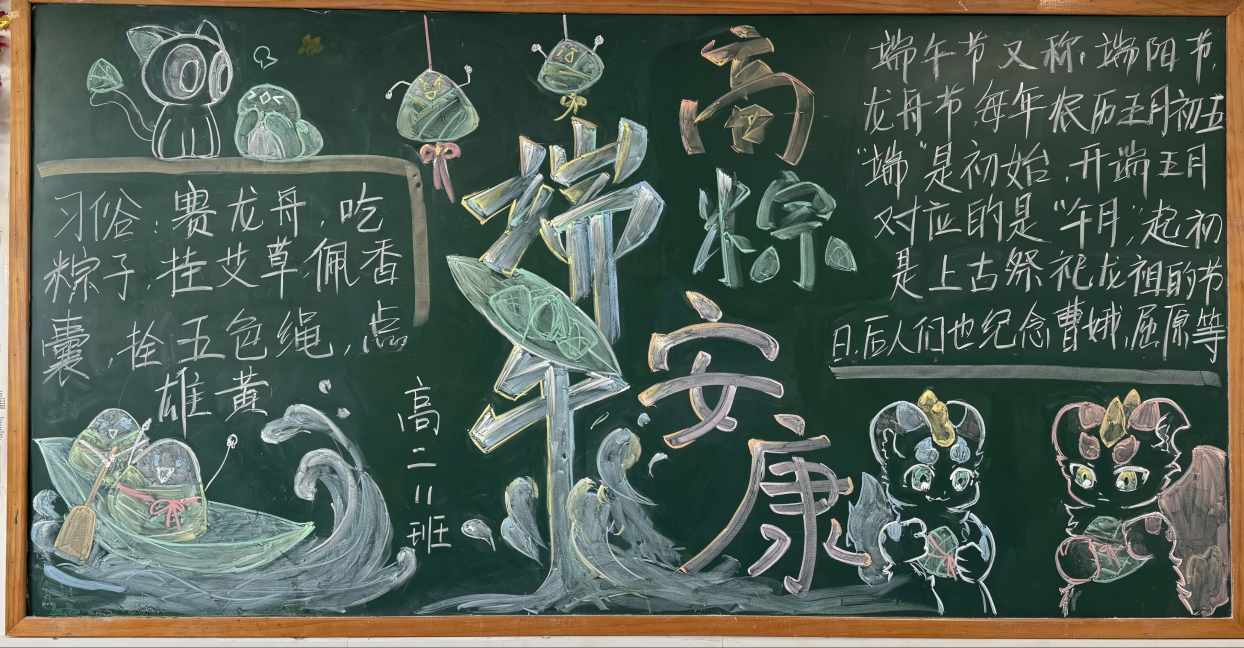 习俗：赛龙舟，吃
粽子，挂艾草，佩香
囊，拴五色绳，点
雄黄
高二11班
端午
高
粽
安
康
端午节又称：端阳节，
龙舟节，每年农历五月初五
“端”是初始，开端五月
对应的是“午月”，起初
是上古祭祀龙祖的节
日，后人们也纪念曹娥，屈原等